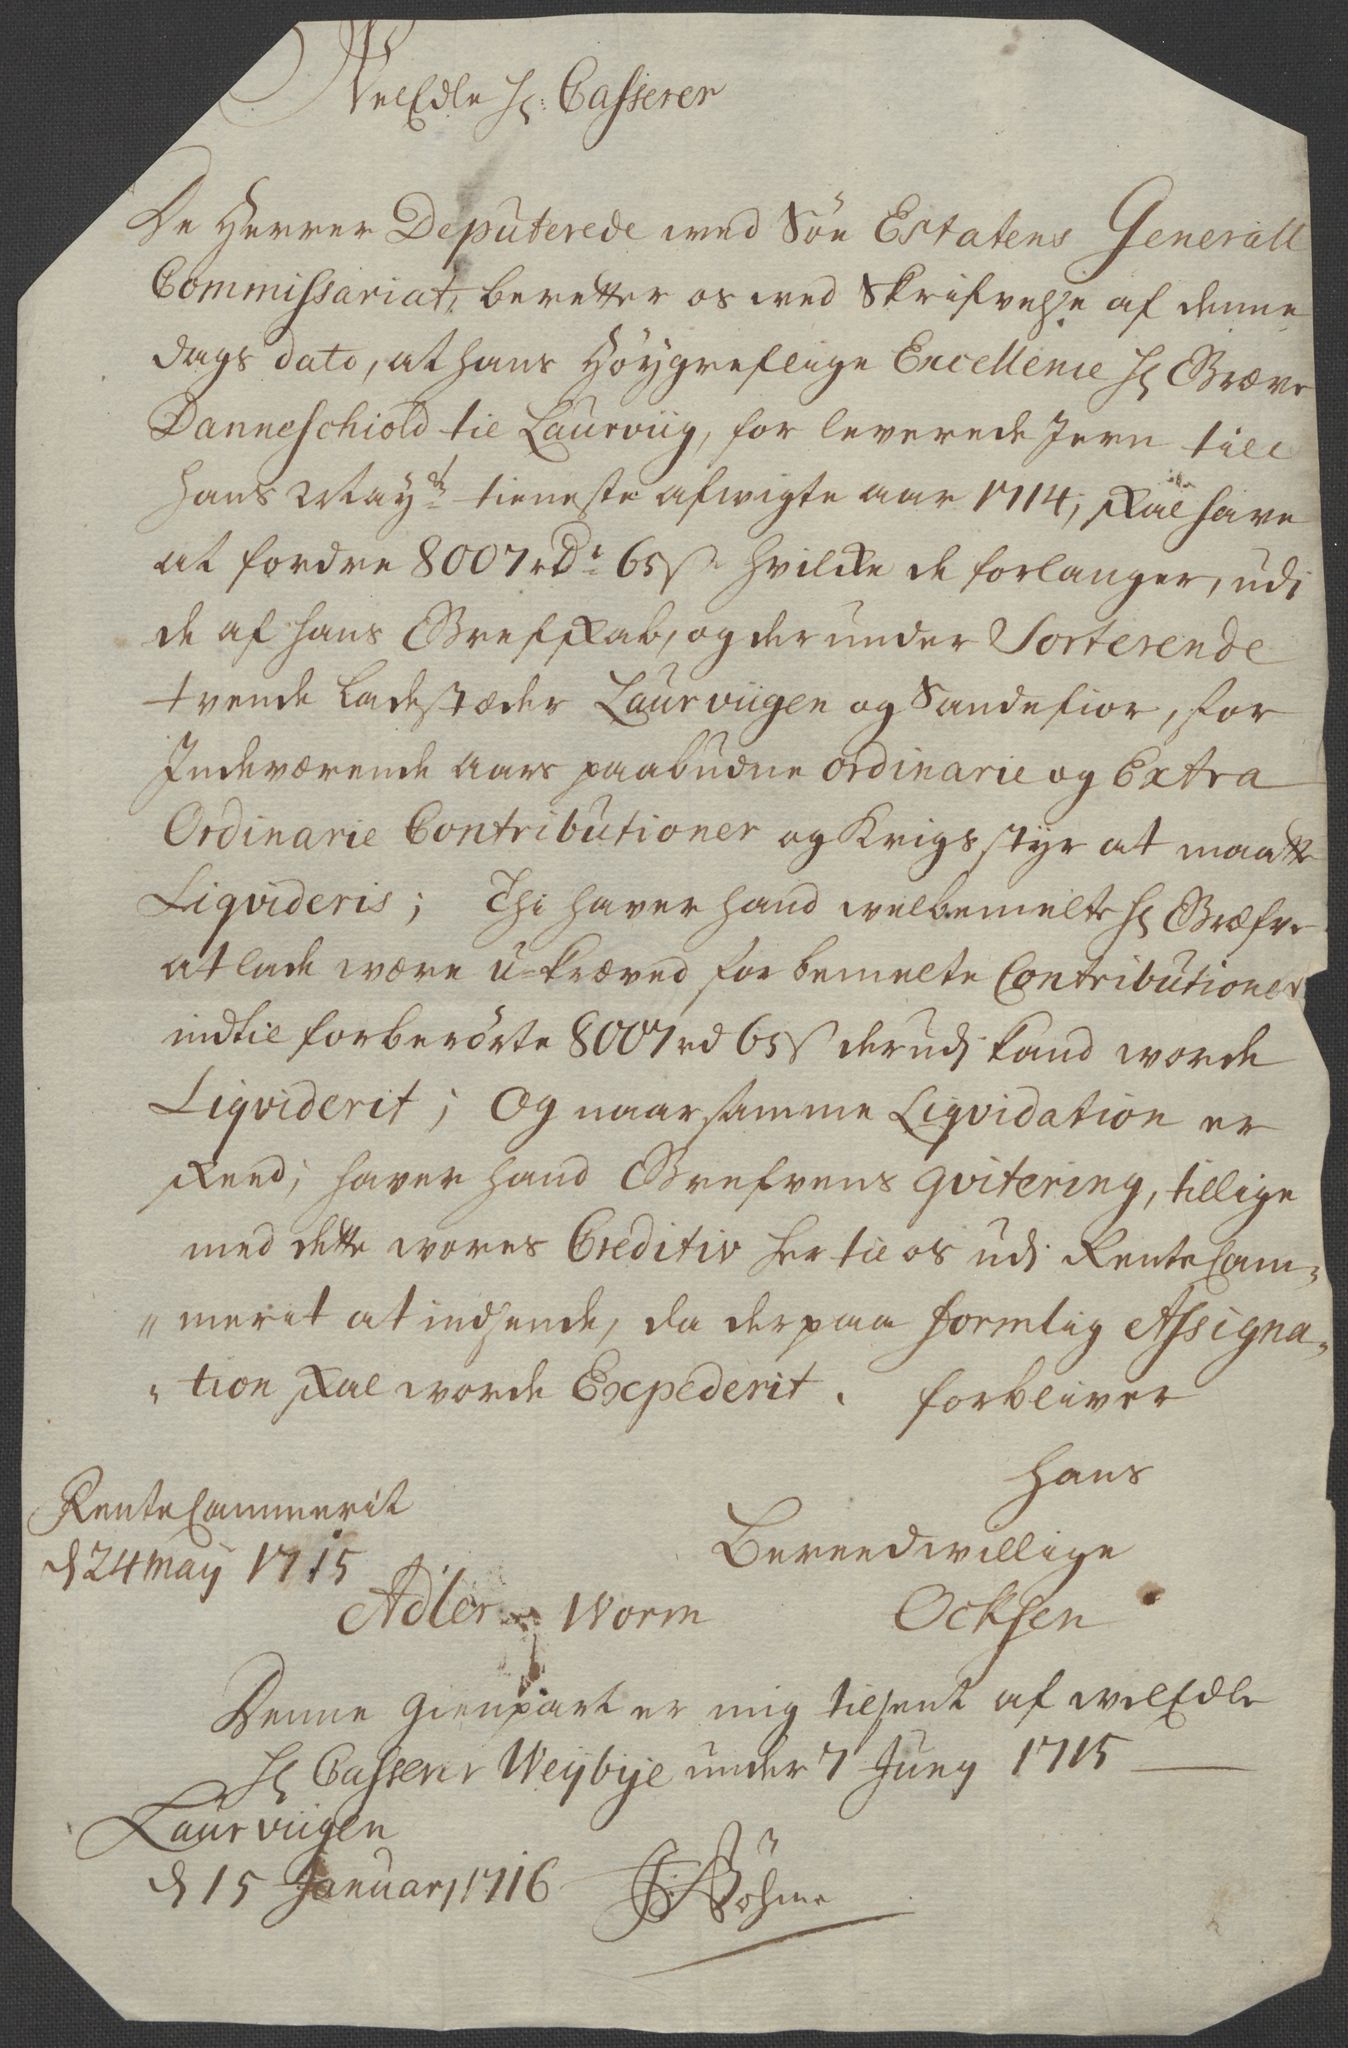 VelEdle Hr: Casserer
De Herrer Deputerede wed Söe Estatens Generall
Commissariat, beretter os wed Skrifvelse af denne
dags dato, at hans Höygreflige Excellence Hr Græve
Danneschiold til Laurviig, for leverede Jern till
Hans Mayts tieneste afwigte aar 1714, skal have
at fordre 8007 rdr 65 s hvilke de forlanger, udj
de af hans Grefskab, og der under Sorterende
tvende Ladestæder Laurviigen og Sandefior, for
Indeværende Aars paabudne ordinarie og Extra
Ordinarie Contributioner og Krigsstyr at maatte
Liqvideris; Thi haver hand welbemelte Hr Græfve
at lade være u-kræved for bemelte Contributioner
indtil forberörte 8007 rd 65 s derudj kand worde
Liqviderit; Og naar samme Liqvidation er
skeed, haver hand Grefvens qvitering, tillige
med dette wores Creditiv her til os udj RenteCam-
"meret at indsende, da derpaa formlig Assigna-
"tion skal worde Expederit. forbliver
Hans
RenteCammerit
d 24 May 1715
Bereedwillige
Adler Worm Ocksen
Denne Gienpart er mig tilsent af welEdle
Hr Casserer Weybye under 7 Juny 1715
Laurviigen
d 15 Januarj 1716 Böhme